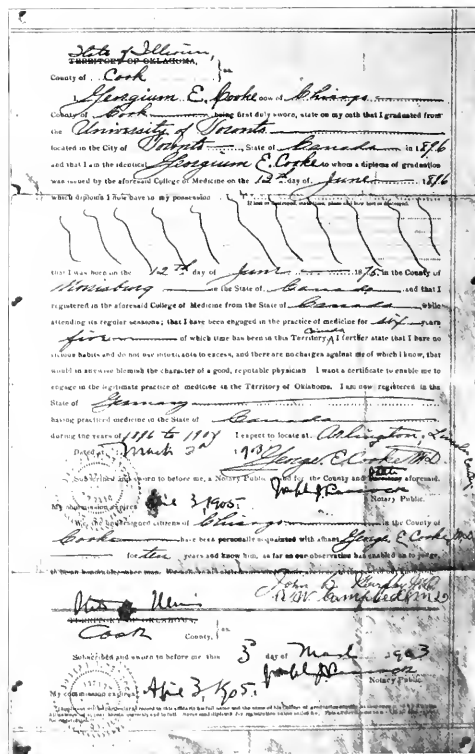 State of Illinois,
TERRITORY OF OKLAHOMA, } ss.
County of Cook
I, Georgium E. Cooke now of Chicago
County of Cook being first duly sworn, state on my oath that I graduated from
the University of Toronto
located in the City of Toronto State of Canada in 1896
and that I am the identical Georgium E. Cooke to whom a diploma of graduation
was issued by the aforesaid College of Medicine on the 12th day of June 1896
which diploma I now have in my possession
that I was born on the 12th day of June 1875, in the County of
in the State of Canada and that I
registered in the aforesaid College of Medicine from the State of Canada while
attending its regular sessions; that I have been engaged in the practice of medicine for six years
five of which time has been in this Territory, Canada I further state that I have no
vicious habits and do not use intoxicants to excess, and there are no charges against me of which I know, that
would in anywise blemish the character of a good, reputable physician I want a certificate to enable me to
engage in the legitimate practice of medicine in the Territory of Oklahoma. I am now registered in the
State of Germany
having practiced medicine in the State of Canada
during the years of 1896 to I expect to locate at Arlington,
Dated at March 3d 1903 George E. Cooke MD
Subscribed and sworn to before me, a Notary Public and for the County and State aforesaid.
Notary Public.
My commission expires Apr 3, 1905.
We, the undersigned citizens of Chicago in the County of
Cooke have been personally acquainted with affiant George E Cooke MD
for ten years and know him, as far as our observation has enabled us to judge,
to be an honorable man.
John B. Murphy MD
R W Campbell MD
State Illinois
TERRITORY OF OKLAHOMA, } ss.
Cook County,
Subscribed and sworn to before me this 3d day of March 1903
Notary Public.
My commission expires April 3, 1905.